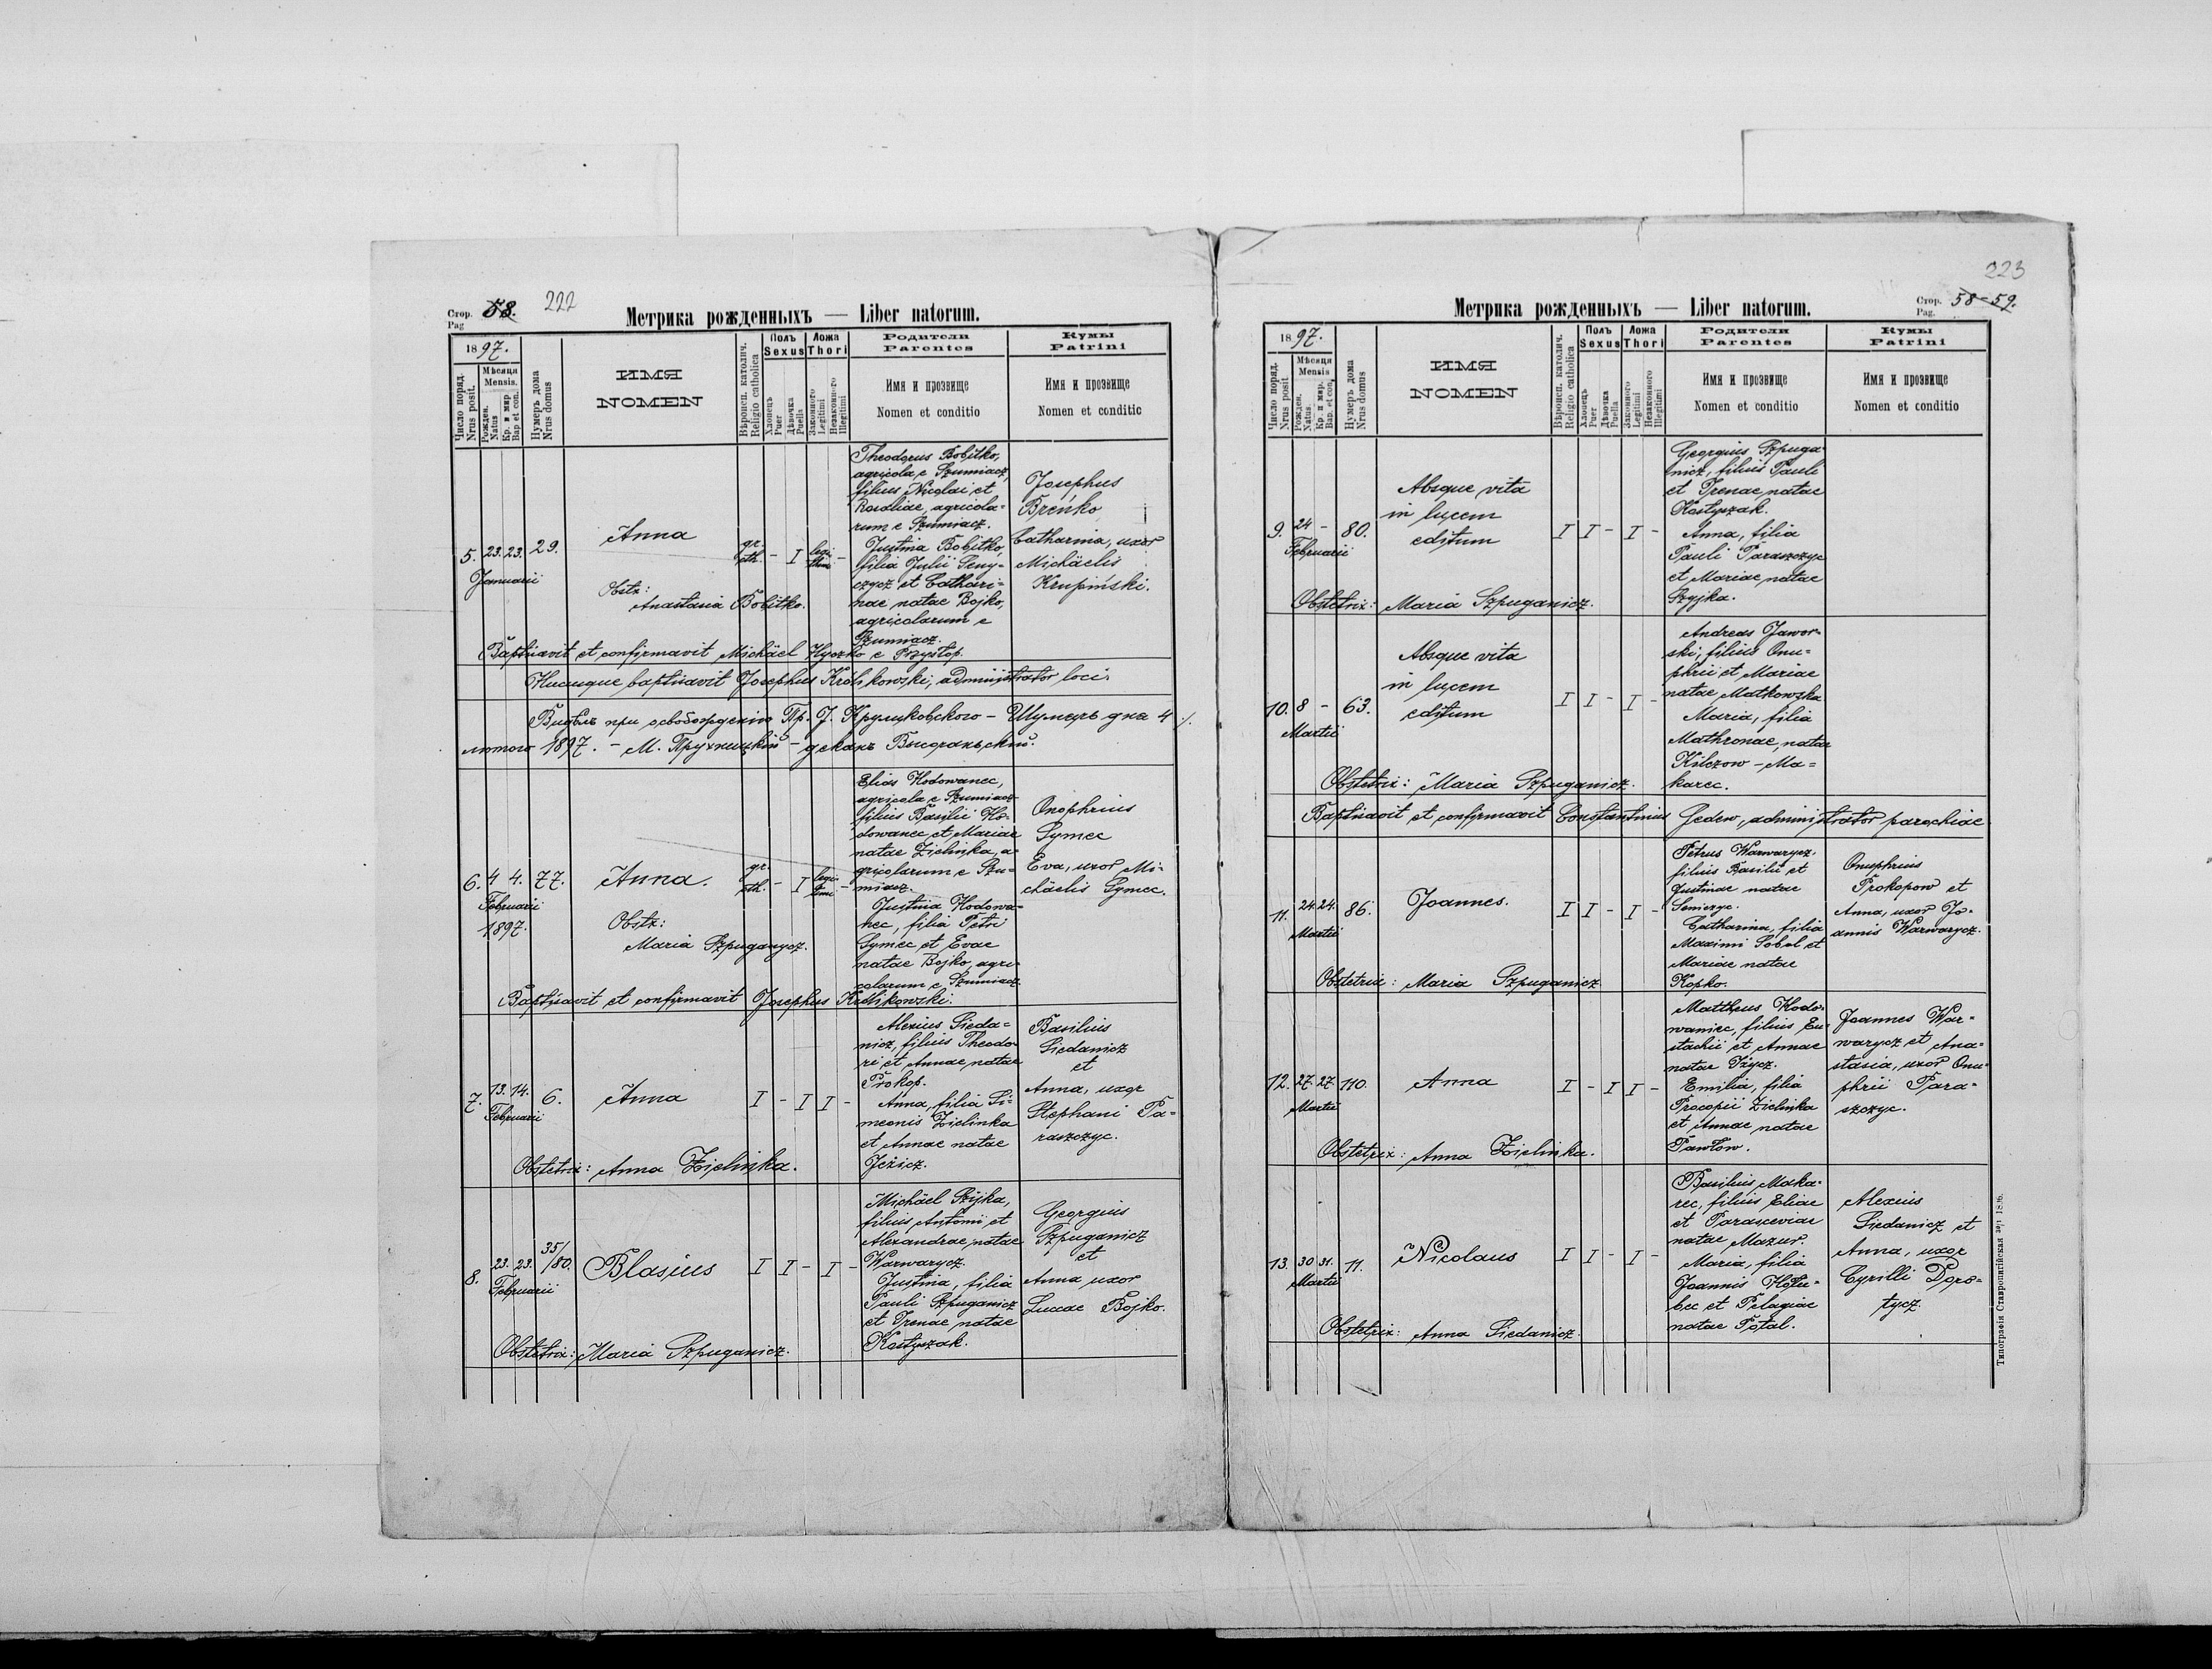 Стор. 58. 222
Pag
Метрика рожденныхъ — Liber natorum.
1897.
Число поряд.
Nrus posit.
Мѣсяця
Mensis.
Рожден.
Natus
Кр. и мир.
Bap et con.
Нумеръ дома
Nrus domus
ИМЯ
NOMEN
Вѣроисп. католич.
Religio catholica
Полъ
Sexus
Хлопець
Puer
Дѣвочка
Puella
Ложа
Thori
Законного
Legitimi
Незаконного
Illegitimi
Родители
Parentes
Имя и прозвище
Nomen et conditio
Кумы
Patrini
Имя и прозвище
Nomen et conditio
5. 23. 23. 29.
Januarii
Anna
Obstz:
Anastasia Bobitko.
gr.
cth. - I legi
timi -
Theodorus Bobitko,
agricola e Szumiacz,
filius Nicolai et
Rosaliae, agricola=
rum e Szumiacz.
Justina Bobitko,
filia Julii Seny-
czycz et Cathari=
nae natae Bojko,
agricolarum e
Szumiacz.
Josephus
Breńko
Catharina, uxor
Michäelis
Krupiński.
Baptisavit et confirmavit Michäel Hyczko e Przystop.
Hucusque baptisavit Josephus Królikowski, administrator loci.
Видѣлъ при освобожденію Пр. J. Крулѣковского - Шумячъ дня 4
лютого 1897. - М. Прухницкій - деканъ Высочаньскій.
6. 4 4. 77.
Februarii
1897.
Anna.
Obstz:
Maria Szpuganycz.
gr.
cth. - I legi
timi -
Elias Hodowanec,
agricola e Szumiacz
filius Basilii Ho-
dowanec et Mariae
natae Zielinka, a-
gricolarum e Szu=
miacz.
Justina Hodowa=
nec, filia Petri
Symec et Evae
natae Bojko, agri=
colarum e Szumiacz
Onophrius
Symec
Eva, uxor Mi-
chäelis Symec.
Baptisavit et confirmavit Josephus Królikowski.
7. 13. 14. 6.
Februarii
Anna
I - I I -
Alexius Sieda=
nicz, filius Theodo-
ri et Annae natae
Prokop.
Anna, filia Si=
meonis Zielinka
et Annae natae
Jeżicz.
Basilius
Siedanicz
et
Anna, uxor
Stephani Pa=
raszczyc.
Obstetrix: Anna Zielinka.
8. 23. 23. 35/80.
Februarii
Blasius
I I - I -
Michäel Szyjka,
filius Antonii et
Alexandrae natae
Warwarycz.
Justina, filia
Pauli Szpuganicz
et Irenae natae
Kostyszak.
Georgius
Szpuganicz
et
Anna uxor
Lucae Bojko.
Obstetrix: Maria Szpuganicz.
223
Метрика рожденныхъ — Liber natorum.
Стор. 58-59.
Pag.
1897.
Число поряд.
Nrus posit.
Мѣсяця
Mensis
Рожден.
Natus
Кр. и мир.
Bap. et con.
Нумеръ дома
Nrus domus
ИМЯ
NOMEN
Вѣроисп. католич.
Religio catholica
Полъ
Sexus
Хлопець
Puer
Дѣвочка
Puella
Ложа
Thori
Законного
Legitimi
Незаконного
Illegitimi
Родители
Parentes
Имя и прозвище
Nomen et conditio
Кумы
Patrini
Имя и прозвище
Nomen et conditio
9. 24 - 80.
Februarii
Absque vita
in lucem
editum
I I - I -
Georgius Szpuga-
nicz, filius Pauli
et Irenae natae
Kostyszak.
Anna, filia
Pauli Paraszczyc
et Mariae natae
Szyjka.
Obstetrix: Maria Szpuganicz.
10. 8 - 63.
Martii
Absque vita
in lucem
editum
I I - I -
Andreas Jawor-
ski, filius Onu=
phrii et Mariae
natae Matkowska
Maria, filia
Mathronae, natae
Kilczow - Ma=
karec.
Obstetrix: Maria Szpuganicz.
Baptisavit et confirmavit Constantinus Gedeo, administrator parochiae
11. 24. 24. 86.
Martii
Joannes.
I I - I -
Petrus Warwarycz,
filius Basilii et
Justinae natae
Seniczyc.
Catharina, filia
Maximi Sobol et
Mariae natae
Kopko.
Onuphrius
Prokopow et
Anna, uxor Jo-
annis Warwarycz.
Obstetrix: Maria Szpuganicz
12. 27. 27. 110.
Martii
Anna
I - I I -
Mattheus Hodo-
waniec, filius Eu-
stachii et Annae
natae Iżycz.
Emilia, filia
Procopii Zielinka
et Annae natae
Pawłow.
Joannes War-
warycz et Ana=
stasia, uxor Onu-
phrii Para=
szczyc.
Obstetrix: Anna Zielinka.
13. 30 31. 11.
Martii
Nicolaus
I I - I -
Basilius Maka-
rec, filius Eliae
et Parasceviae
natae Mazur.
Maria, filia
Joannis Hołu-
bec et Pelagiae
natae Potal.
Alexius
Siedanicz et
Anna, uxor
Cyrilli Doro=
tycz.
Obstetrix: Anna Siedanicz.
Типографія Ставропигійская